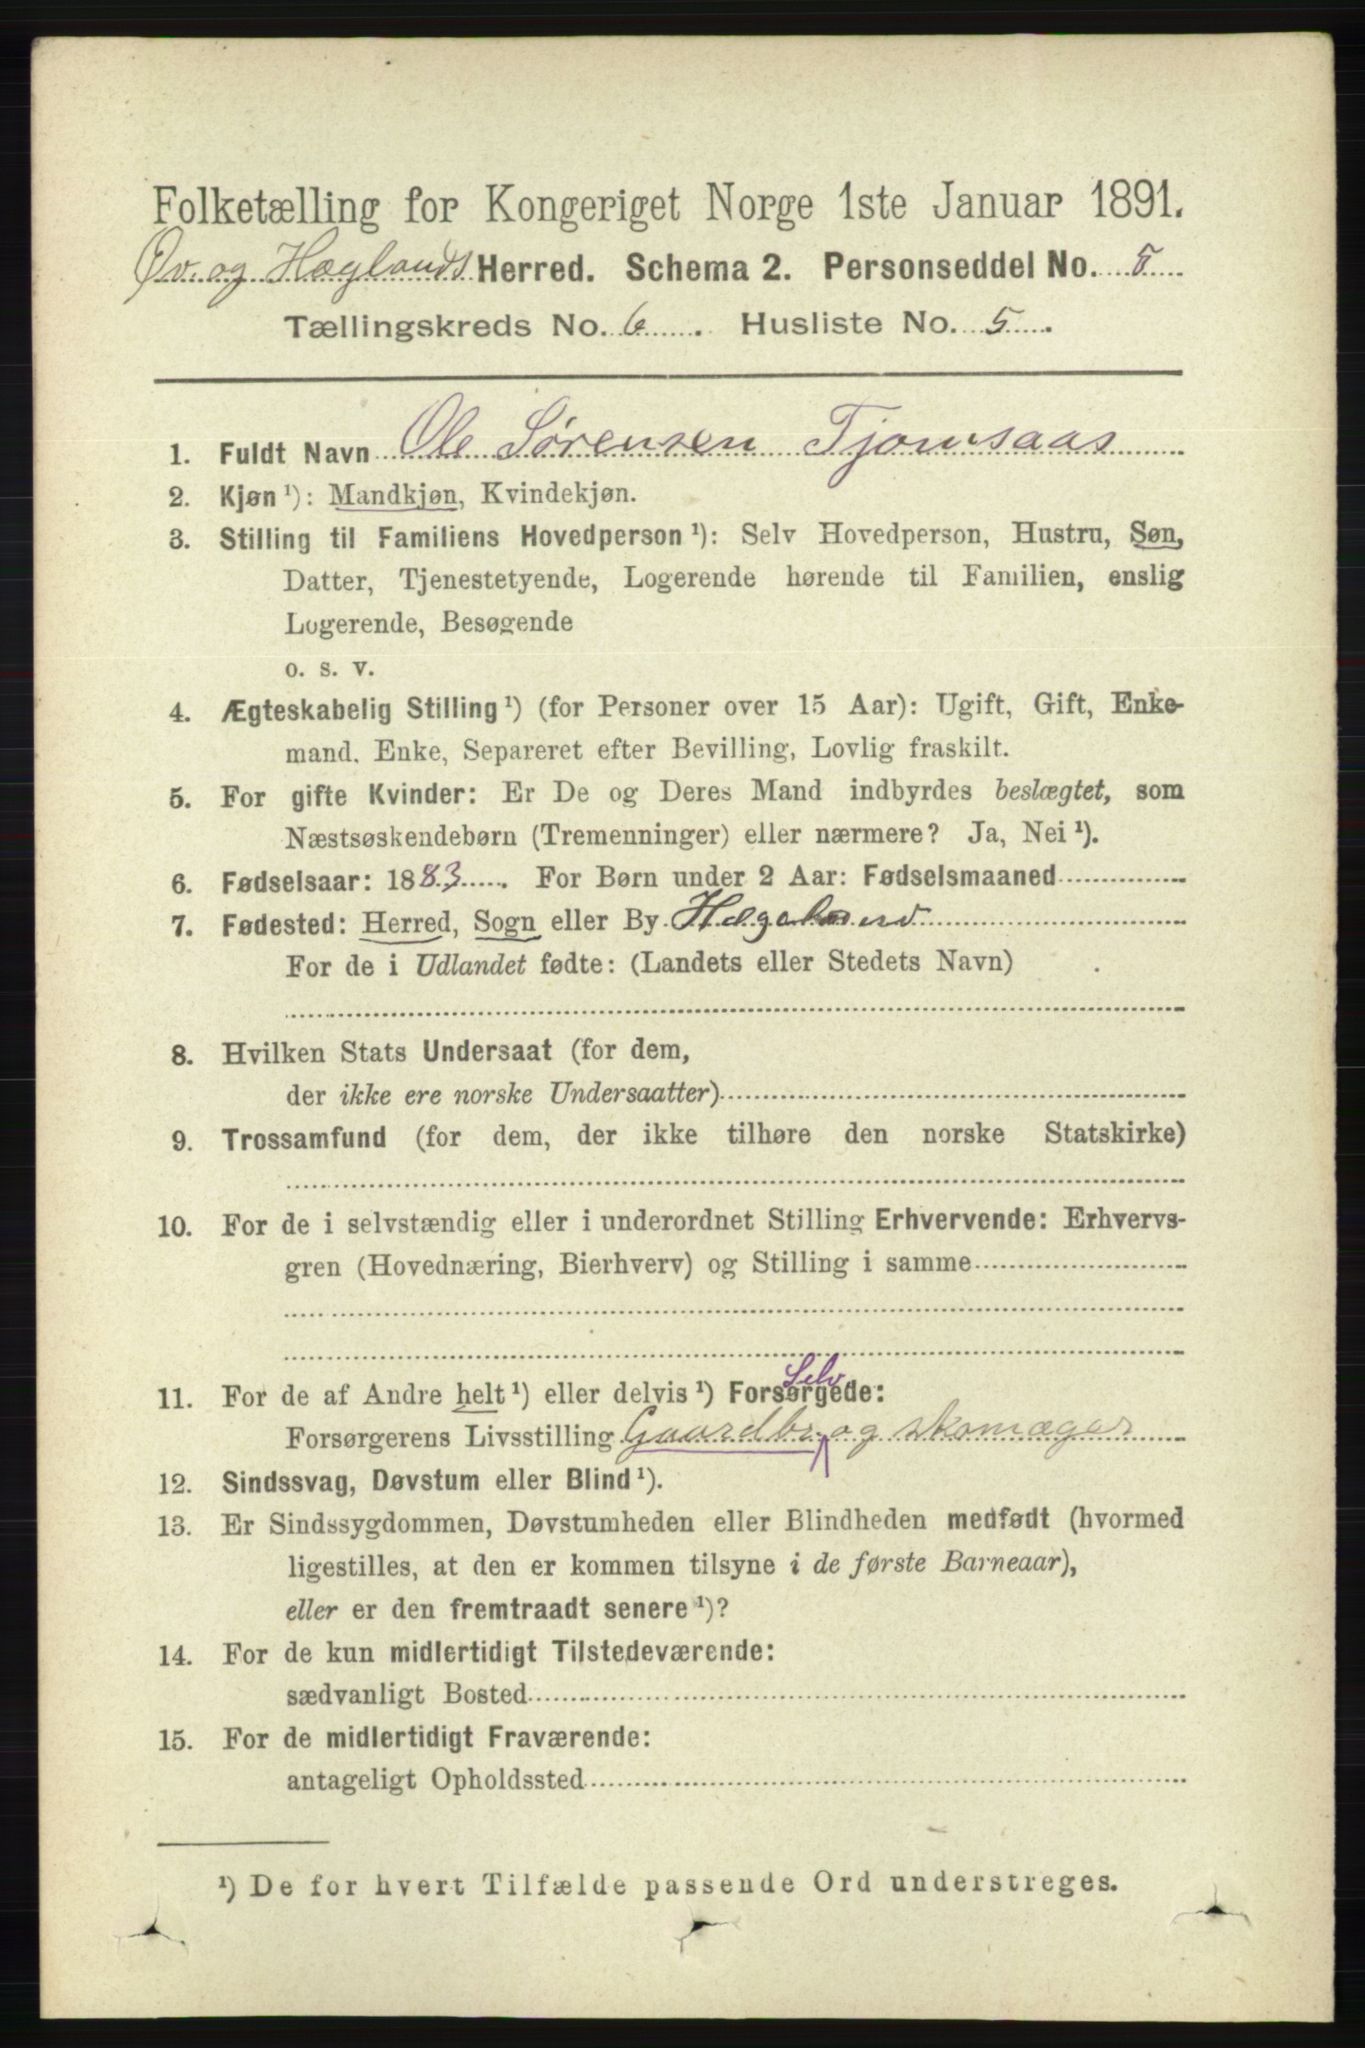 Folketælling for Kongeriget Norge 1ste Januar 1891.
Øv. og Hæglands Herred. Schema 2. Personseddel No. 5
Tællingskreds No. 6. Husliste No. 5.
1. Fuldt Navn Ole Sørensen Tjomsaas
2. Kjøn ¹): Mandkjøn, Kvindekjøn.
3. Stilling til Familiens Hovedperson ¹): Selv Hovedperson, Hustru, Søn,
Datter, Tjenestetyende, Logerende hørende til Familien, enslig
Logerende, Besøgende
o. s. v.
4. Ægteskabelig Stilling ¹) (for Personer over 15 Aar): Ugift, Gift, Enke-
mand, Enke, Separeret efter Bevilling, Lovlig fraskilt.
5. For gifte Kvinder: Er De og Deres Mand indbyrdes beslægtet, som
Næstsøskendebørn (Tremenninger) eller nærmere? Ja, Nei ¹).
6. Fødselsaar: 1883. For Børn under 2 Aar: Fødselsmaaned
7. Fødested: Herred, Sogn eller By Hægeland
For de i Udlandet fødte: (Landets eller Stedets Navn)
8. Hvilken Stats Undersaat (for dem,
der ikke ere norske Undersaatter)
9. Trossamfund (for dem, der ikke tilhøre den norske Statskirke)
10. For de i selvstændig eller i underordnet Stilling Erhvervende: Erhvervs-
gren (Hovednæring, Bierhverv) og Stilling i samme
Selv
11. For de af Andre helt ¹) eller delvis ¹) Forsørgede:
Forsørgerens Livsstilling Gaardbr. og skomager
12. Sindssvag, Døvstum eller Blind ¹).
13. Er Sindssygdommen, Døvstumheden eller Blindheden medfødt (hvormed
ligestilles, at den er kommen tilsyne i de første Barneaar),
eller er den fremtraadt senere ¹)?
14. For de kun midlertidigt Tilstedeværende:
sædvanligt Bosted
15. For de midlertidigt Fraværende:
antageligt Opholdssted
¹) De for hvert Tilfælde passende Ord understreges.